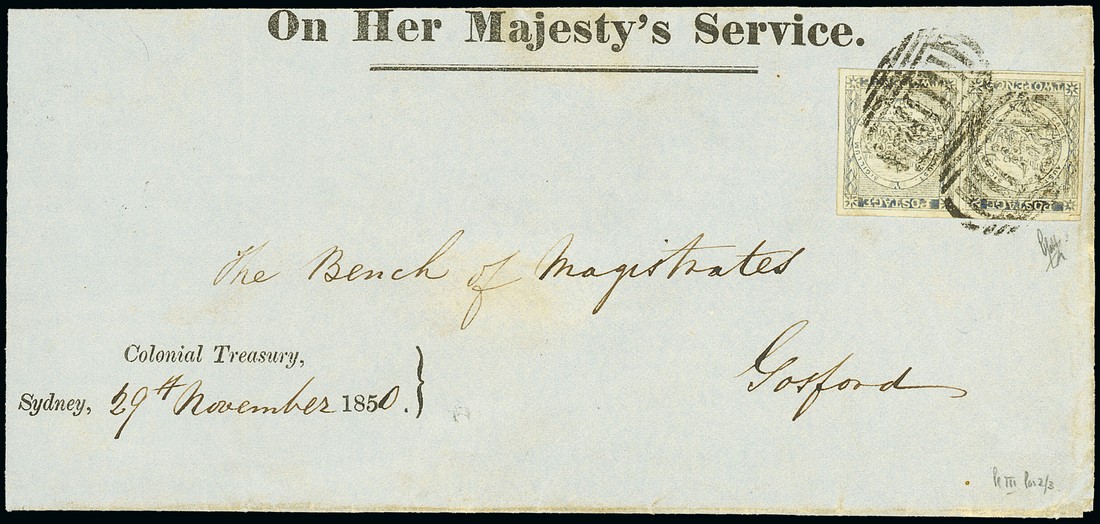 On Her Majesty's Service.
TWO PENCE
POSTAGE
POSTAGE
The Bench of Magistrates
Colonial Treasury,
Gosford
Sydney, 29th November 1850.
Pl III Pos 2/3